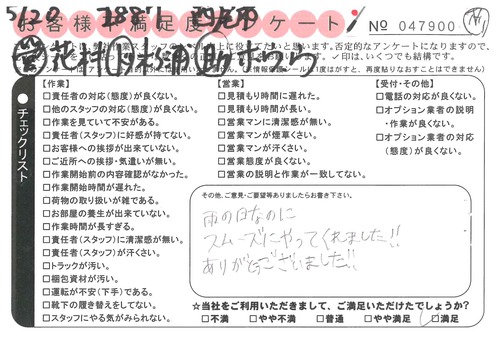 5/20
お客様不満足度アンケート!
No 047900
【作業】
□責任者の対応(態度)が良くない。
□他のスタッフの対応(態度)が良くない。
□作業を見ていて不安がある。
□責任者(スタッフ)に好感が持てない。
□お客様への挨拶が出来ていない。
□ご近所への挨拶・気遣いが無い。
□作業開始前の内容確認がなかった。
□作業開始時間が遅れた。
□荷物の取り扱いが雑である。
□お部屋の養生が出来ていない。
□作業時間が長すぎる。
□責任者(スタッフ)に清潔感が無い。
□責任者(スタッフ)が汗くさい。
□トラックが汚い。
□梱包資材が汚い。
□運転が不安(下手)である。
□靴下の履き替えをしてない。
□スタッフにやる気がみられない。
チェックリスト
【営業】
□見積もり時間に遅れた。
□見積もり時間が長い。
□営業マンに清潔感が無い。
□営業マンが煙草くさい。
□営業マンが汗くさい。
□営業態度が良くない。
□営業の説明と作業が一致してない。
【受付・その他】
□電話の対応が良くない。
□オプション業者の説明
・作業が良くない。
□オプション業者の対応
(態度)が良くない。
その他、ご意見・ご要望等ありましたらお書き下さい。
雨の日なのに
スムーズにやってくれました!!
ありがとうございました!!
☆当社をご利用いただきまして、ご満足いただけたでしょうか?
□不満 □やや不満 □普通 □やや満足 □満足